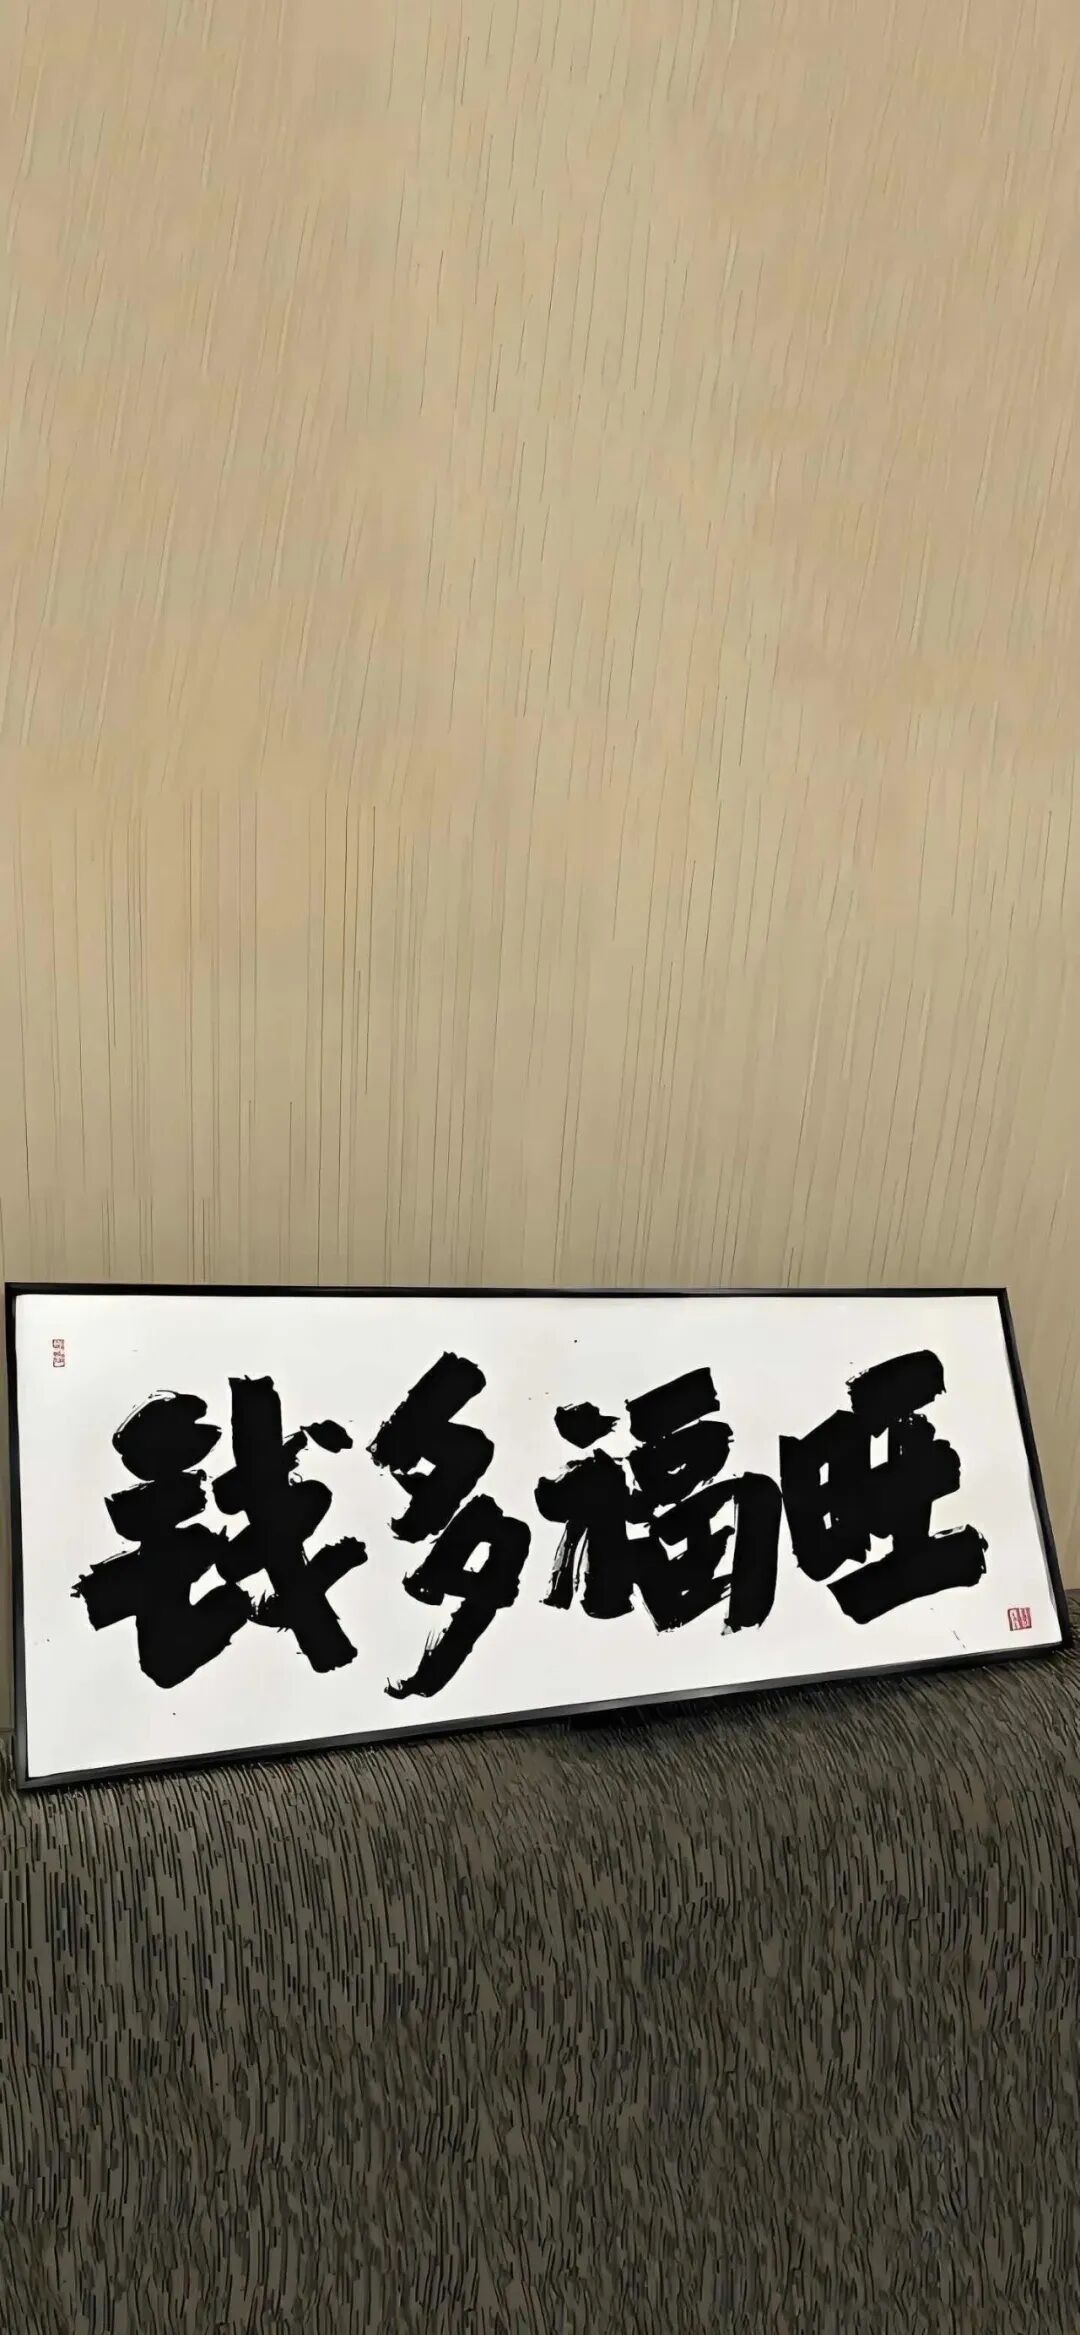 钱多福旺